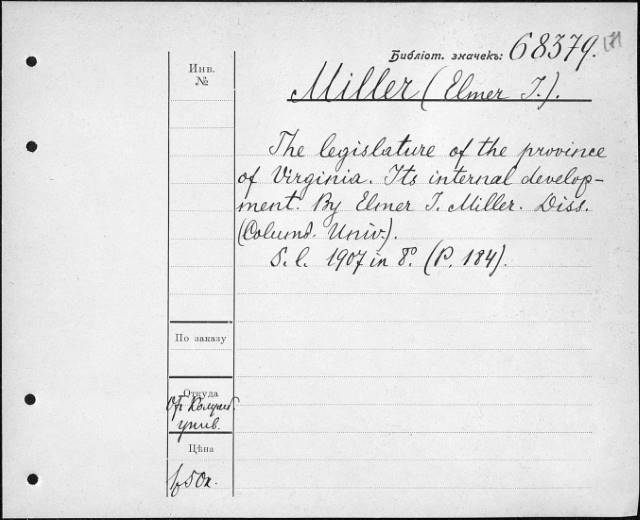 Библіот. значекъ: 68379.
Инв.
№
Miller (Elmer I.).
The legislature of the province
of Virginia. Its internal develop-
ment. By Elmer I. Miller. Diss.
(Columb. Univ.).
S. l. 1907 in 8°. (P. 184).
По заказу
Откуда
унив.
Цѣна